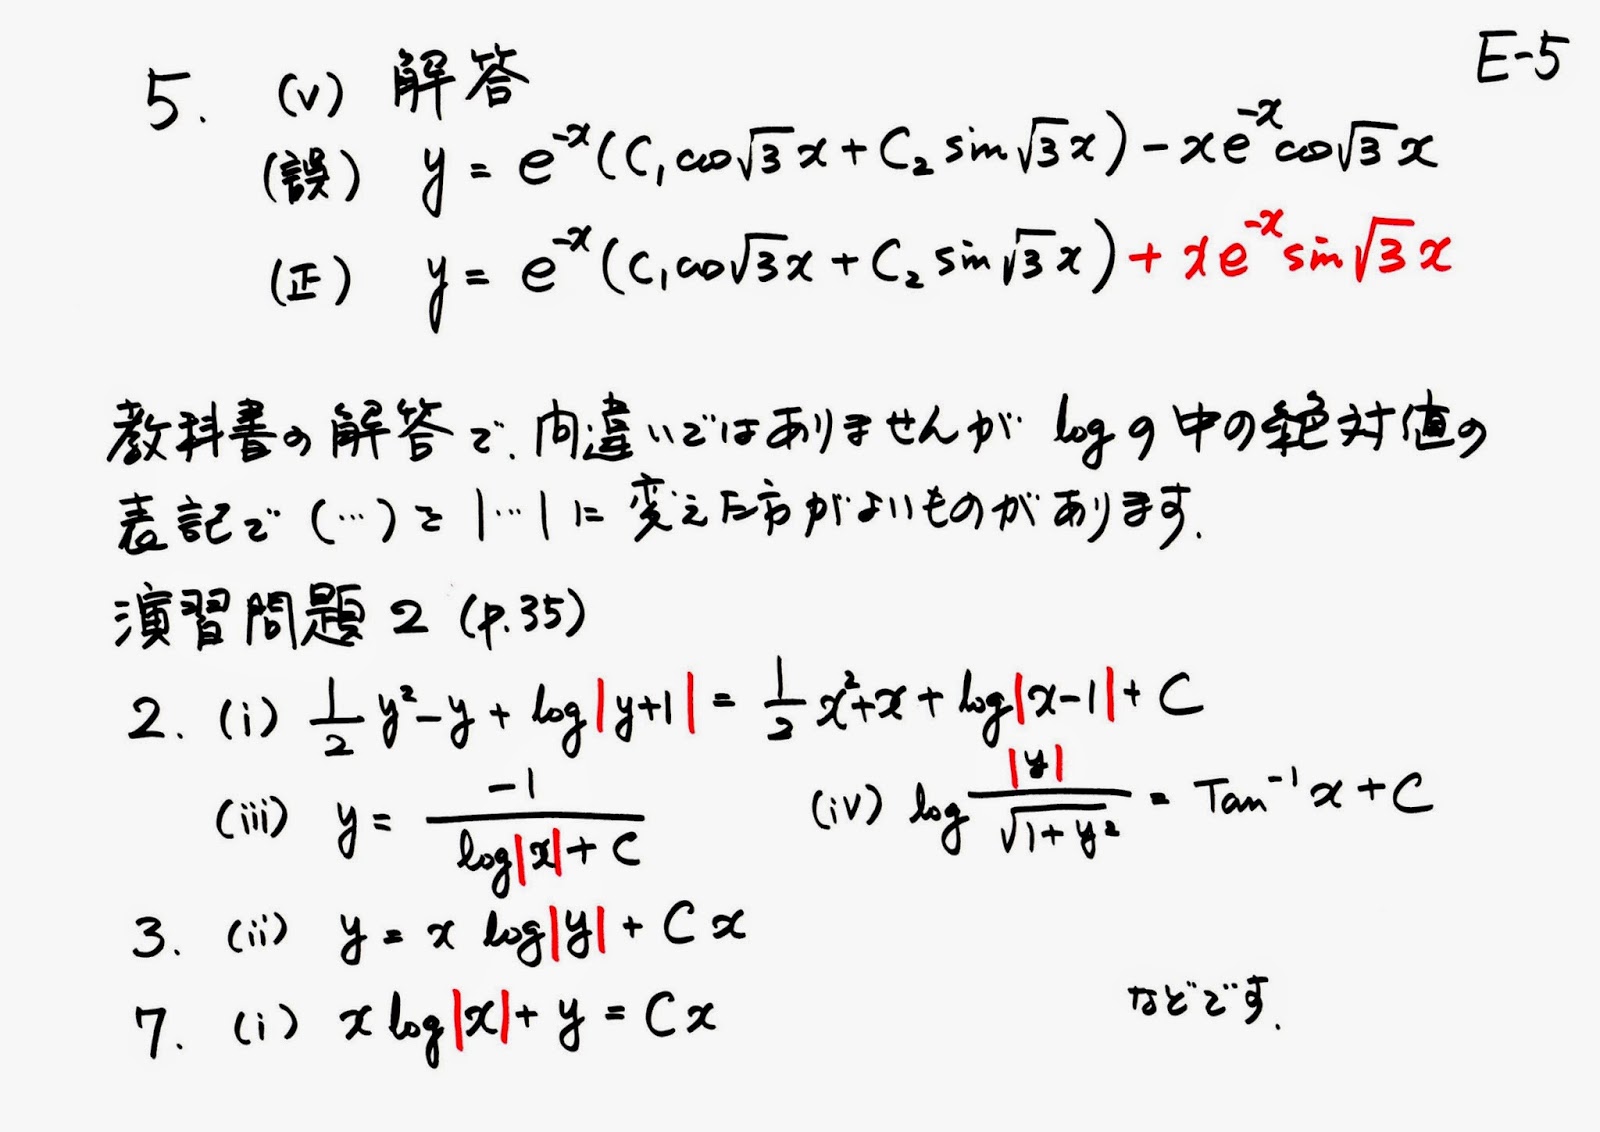 E-5
5. (v) 解答
(誤) y = e^{-x}(C₁cos√3x + C₂ sin√3x) - xe^{-x}cos√3x
(正) y = e^{-x}(C₁cos√3x + C₂ sin√3x) + xe^{-x}sin√3x
教科書の解答で、間違いではありませんが log の中の絶対値の
表記で (…) を |…| に 変えた方がよいものがあります.
演習問題 2 (p.35)
2. (i) 1/2 y² - y + log|y+1| = 1/2 x² + x + log|x-1| + C
(iii) y = -1/(log|x| + C) (iv) log |y|/√(1+y²) = Tan⁻¹ x + C
3. (ii) y = x log|y| + Cx
7. (i) x log|x| + y = Cx
などです.